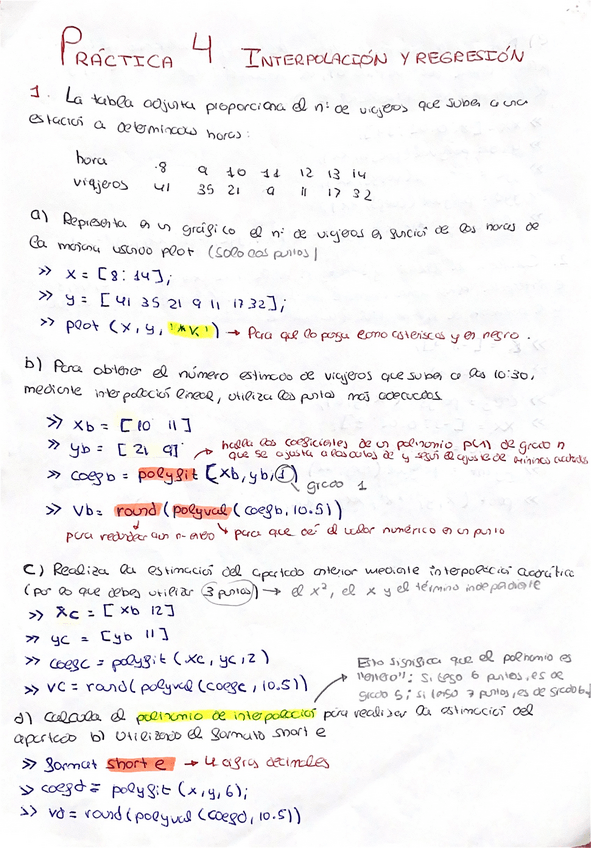 PRÁCTICA 4. INTERPOLACIÓN Y REGRESIÓN
1. La tabla adjunta proporciona el nº de viajeros que suben a una
estación a determinadas horas:
hora 8 9 10 11 12 13 14
viajeros 41 35 21 9 11 17 32
a) Representa en un gráfico el nº de viajeros en función de las horas de
la mañana usando plot (solo los puntos)
>> x = [8:14];
>> y = [41 35 21 9 11 17 32];
>> plot (x, y, '*k') → Para que lo ponga como asteriscos y en negro.
b) Para obtener el número estimado de viajeros que suben a las 10:30,
mediante interpolación lineal, utiliza los puntos más adecuados
>> xb = [10 11]
>> yb = [21 9]
halla los coeficientes de un polinomio p(x) de grado n
que se ajusta a los datos de y según el ajuste de mínimos cuadrados
>> coefb = polyfit [xb, yb, 1)
grado 1
>> Vb = round (polyval (coefb, 10.5))
para redondear a un nº entero para que dé el valor numérico en un punto
c) Realiza la estimación del apartado anterior mediante interpolación cuadrática
(por lo que debes utilizar 3 puntos) → el x², el x y el término independiente
>> xc = [xb 12]
>> yc = [yb 11]
>> coefc = polyfit (xc, yc, 2)
>> VC = round (polyval (coefc, 10.5))
Esto significa que el polinomio es
"entero"; si tengo 6 puntos, es de
grado 5; si tengo 7 puntos, es de grado 6
d) Calcula el polinomio de interpolación para realizar la estimación del
apartado b) utilizando el formato short e
>> format short e → 4 cifras decimales
>> coefd = polyfit (x, y, 6);
>> vd = round (polyval (coefd, 10.5))